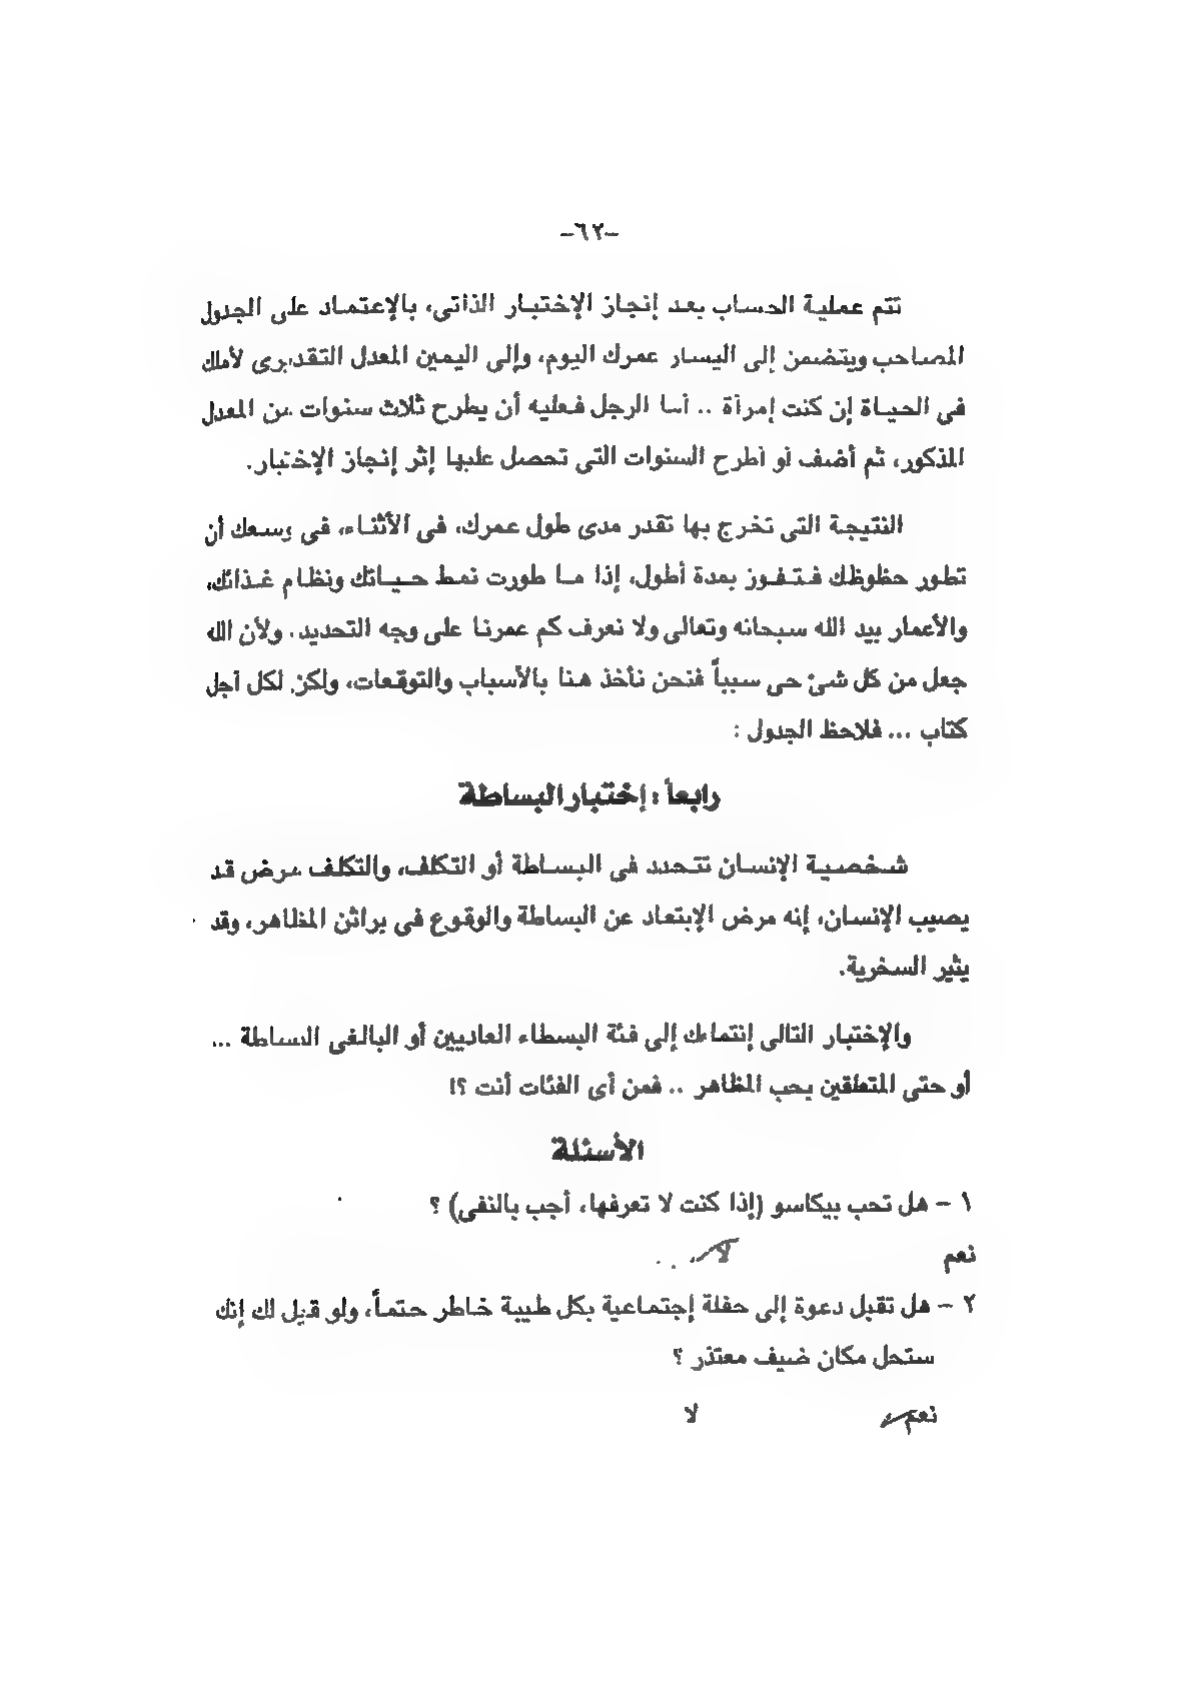 -٦٢-
تتم عملية الحساب بعد إنجاز الإختبار الذاتى، بالإعتماد على الجدول
المصاحب ويتضمن إلى اليسار عمرك اليوم، وإلى اليمين المعدل التقديرى لأملك
فى الحياة إن كنت إمرأة .. أما الرجل فعليه أن يطرح ثلاث سنوات من المعدل
المذكور، ثم أضف أو أطرح السنوات التى تحصل عليها إثر إنجاز الإختبار.
النتيجة التى تخرج بها تقدر مدى طول عمرك، فى الأثناء، فى وسعك أن
تطور حظوظك فتفوز بمدة أطول، إذا ما طورت نمط حياتك ونظام غذائك،
والأعمار بيد الله سبحانه وتعالى ولا نعرف كم عمرنا على وجه التحديد. ولأن الله
جعل من كل شئ حى سبباً فنحن نأخذ هنا بالأسباب والتوقعات، ولكن لكل أجل
كتاب ... فلاحظ الجدول :
رابعاً : إختبار البساطة
شخصية الإنسان تتحدد فى البساطة أو التكلف، والتكلف مرض قد
يصيب الإنسان، إنه مرض الإبتعاد عن البساطة والوقوع فى براثن المظاهر، وقد
يثير السخرية.
والإختبار التالى إنتماءك إلى فئة البسطاء العاديين أو البالغى البساطة ...
أو حتى المتعلقين بحب المظاهر .. فمن أى الفئات أنت ؟!
الأسئلة
١ - هل تحب بيكاسو (إذا كنت لا تعرفها، أجب بالنفى) ؟
نعم لا
٢ - هل تقبل دعوة إلى حفلة إجتماعية بكل طيبة خاطر حتماً، ولو قيل لك إنك
ستحل مكان ضيف معتذر ؟
نعم لا